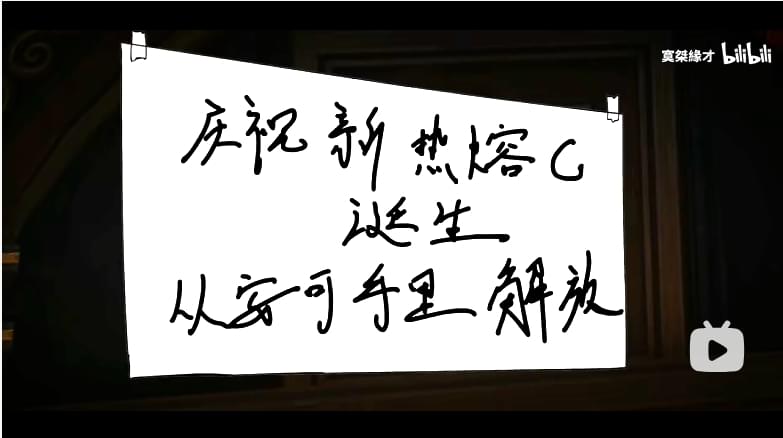 寞桀緣才 bilibili
庆祝新热熔C
诞生
从安可手里解放